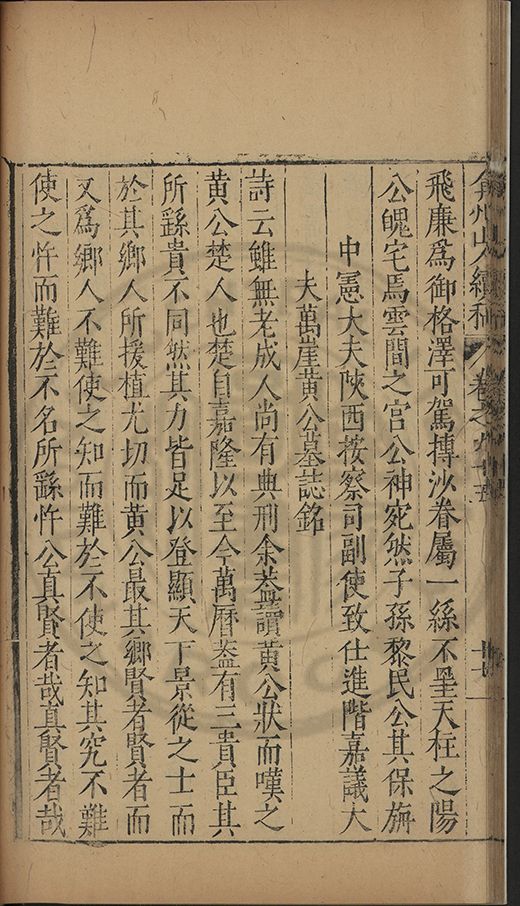 弇州山人續稿 卷之九十五 十七
飛廉爲御格澤可駕摶沙眷屬一絲不罣天柱之陽
公魄宅焉雲間之宫公神宛然子孫黎民公其保旃
中憲大夫陝西按察司副使致仕進階嘉議大
夫萬崖黃公墓誌銘
詩云雖無老成人尚有典刑余葢讀黃公狀而嘆之
黃公楚人也楚自嘉隆以至今萬曆葢有三貴臣其
所繇貴不同然其力皆足以登顯天下景從之士而
於其鄉人所援植尤切而黃公最其鄉賢者賢者而
又爲鄉人不難使之知而難於不使之知其究不難
使之忤而難於不名所繇忤公真賢者哉真賢者哉